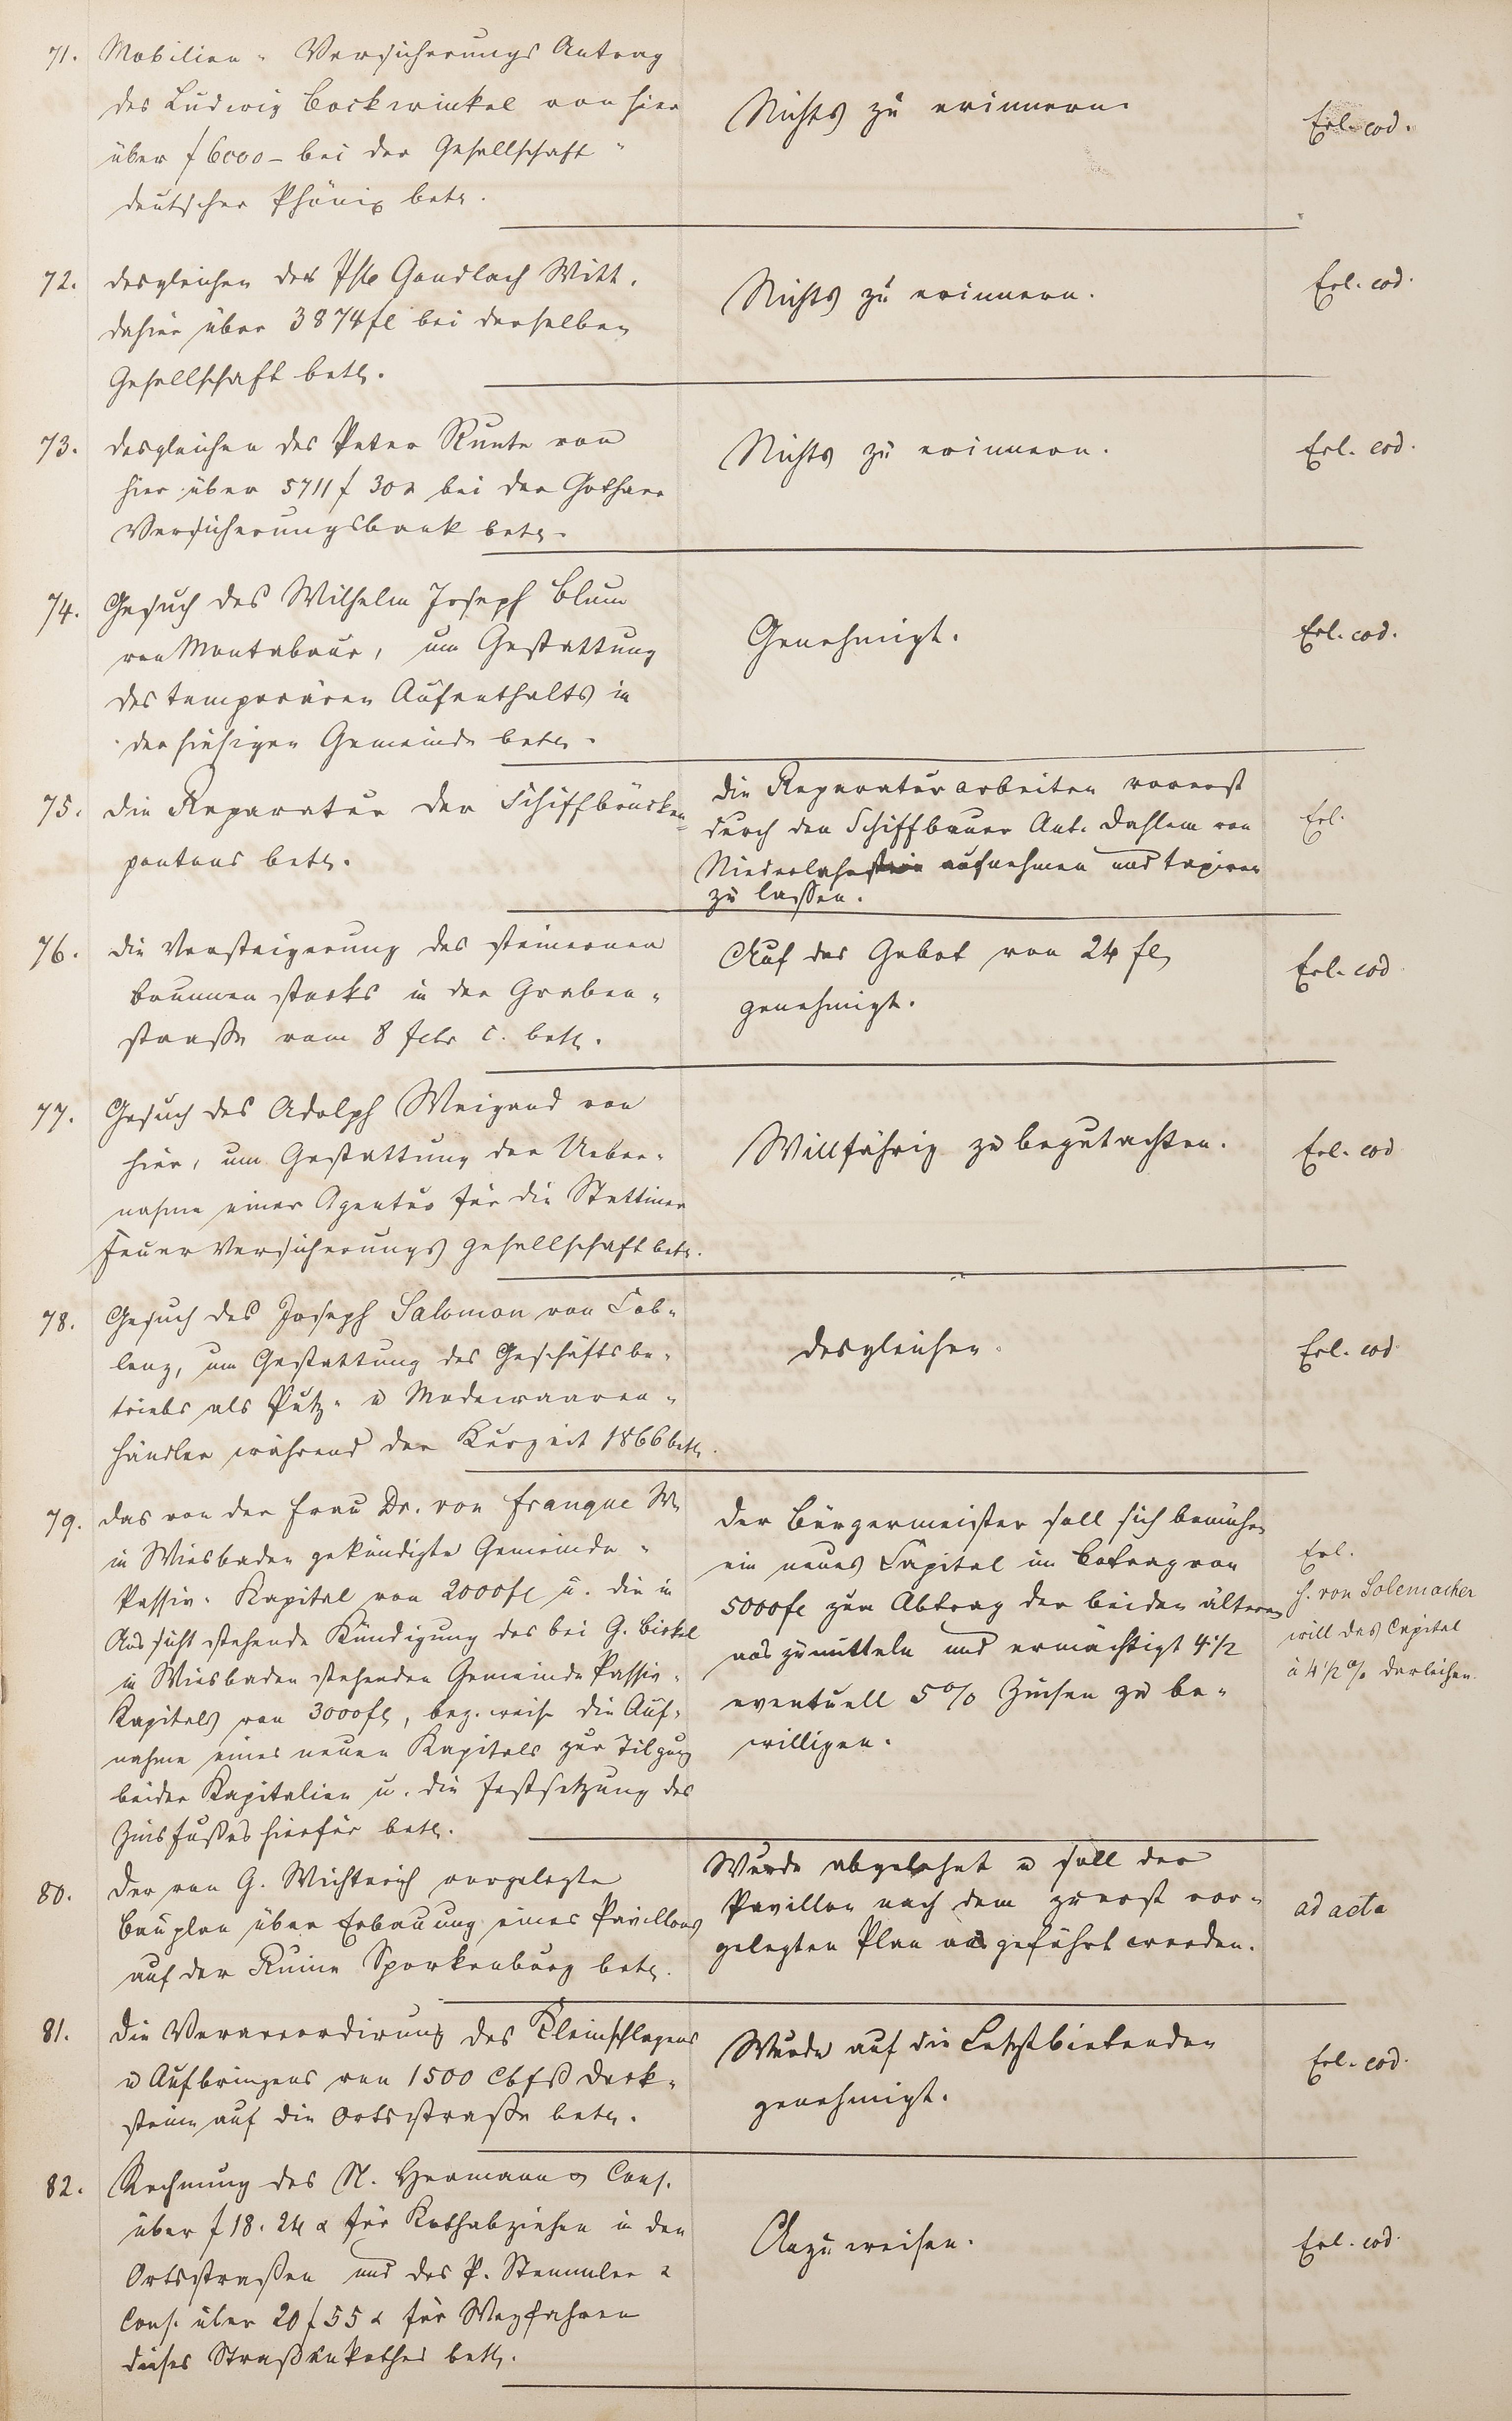 71. Mobilien- Versicherungs Antrag
des Ludwig Bockwinkel von hier
über f 6000 – bei der Gesellschaft
deutscher Phönix betr.
Nichts zu erinnern.
Erl. eod.
72. desgleichen der Gondlach Witt.
dahier über 3874 fl bei derselben
Gesellschaft betr.
Nichts zu erinnern.
Erl. eod.
73. desgleichen des Peter Runte von
hier über 5711 f 30 x bei der Gothaer
Versicherungsbank betr.
Nichts zu erinnern.
Erl. eod.
74. Gesuch des Wilhelm Joseph Blum
von Montabaur, um Gestattung
des temporären Aufenthalts in
der hiesigen Gemeinde betr.
Genehmigt.
Erl. eod.
75. die Reparatur der Schiffbrücken-
pontons betr.
die Reparaturarbeiten vorerst
durch den Schiffbauer Ant. Dahlem von
Niederlahnstein aufnehmen und taxiren
zu lassen.
Erl.
76. die Versteigerung des steinernen
Brunnenstocks in der Graben-
straße vom 8 Febr c. betr.
Auf das Gebot von 24 fl
genehmigt.
Erl. eod
77. Gesuch des Adolph Weigand von
hier, um Gestattung der Ueber-
nahme einer Agentur für die Stettiner
Feuer Versicherungs gesellschaft betr.
Willfährig zu begutachten.
Erl. eod
78. Gesuch des Joseph Salomon von Cob-
lenz, um Gestattung des Geschäftsbe-
triebs als Putz- u Modewaaren-
händler während der Kurzeit 1866 betr.
desgleichen.
Erl. eod
79. das von der Frau Dr. von Franque W.
in Wiesbaden gekündigte Gemeinde-
Passiv- Kapital von 2000 fl u. die in
Aussicht stehende Kündigung des bei G. Birkel
in Wiesbaden stehenden Gemeinde Passiv-
Kapitals von 3000 fl, bez. weise die Auf-
nahme eines neuen Kapitals zur Tilgung
beider Kapitalien u. die Festsetzung des
Zinsfußes hierfür betr.
der Bürgermeister soll sich bemühen
ein neues Capital im Betrag von
5000 fl zum Abtrag der beiden älteren
auszumitteln und ermächtigt 4 1/2
eventuell 5% Zinsen zu be-
willigen.
Erl.
H. von Solemacher
will das Capital
à 4 1/2 % darleihen.
80. der von G. Wichterich vorgelegte
Bauplan über Erbauung eines Pavillons
auf der Ruine Sporkenburg betr.
Wurde abgelehnt u soll der
Pavillon nach dem zuerst vor-
gelegten Plan ausgeführt werden.
ad acta
81. die Veraccordirung des Kleinschlagens
u Aufbringens von 1500 Cbfß Deck-
steine auf die Ortsstraße betr.
Wurde auf die Letztbietenden
genehmigt.
Erl. eod.
82. Rechnung des N. Hermann & Cons.
über f 18. 24 x für Kothabziehen in den
Ortsstraßen und des P. Stemmler &
Cons. über 20 f 55 x für Wegfahren
dieses Straßenkothes betr.
Anzuweisen.
Erl. eod.